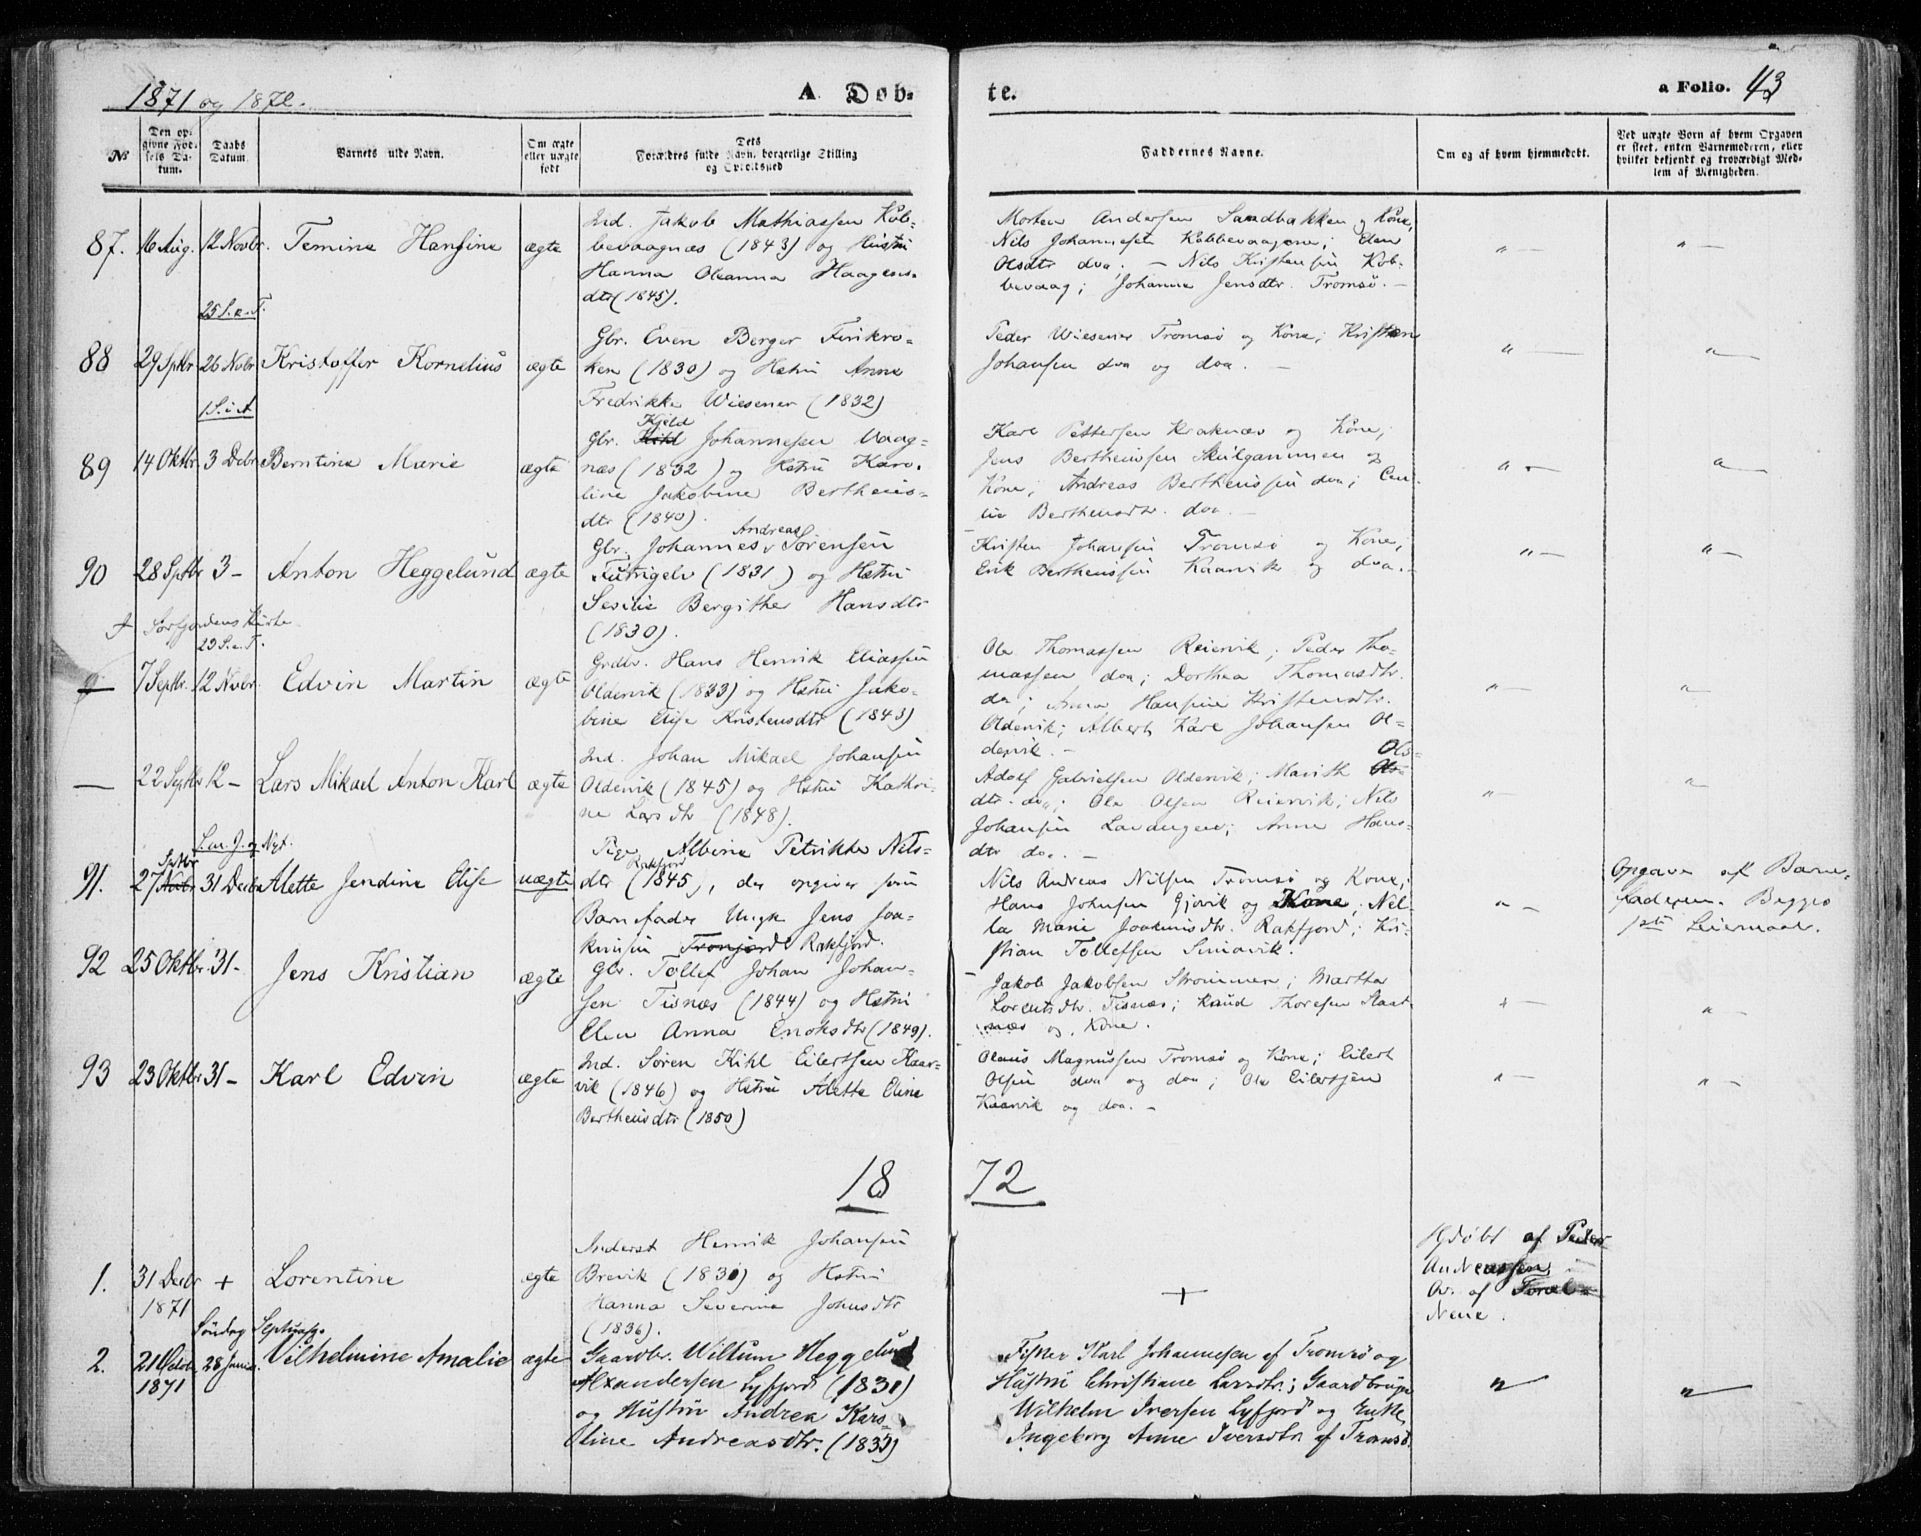 1871 og 1872.
A. Døb-
te.
a Folio. 43
№
Den op-
givne Fød-
sels Da-
tum.
Daabs
Datum.
Barnets fulde Navn.
Om ægte
eller uægte
født
Dets
Forældres fulde Navn, borgerlige Stilling
og Opholdssted
Faddernes Navne.
Om og af hvem hjemmedøbt.
Ved uægte Børn af hvem Opgaven
er skeet, enten Barnemoderen, eller
hvilket bekjendt og troværdigt Med-
lem af Menigheden.
87. 16 Aug. 12 Novbr. Temine Hansine ægte
Ind. Jakob Mathiassen Kob-
bevaagnæs (1843) og Hustru
Hanna Oleanna Haagens-
dtr (1845).
Morten Andersen Sandbakken og Kone,
Nils Johannesen Kobbevaagen; Elen
Olsdtr doa; – Nils Kristensen Kob-
bevaag; Johanna Jensdtr. Tromsø. –
" – " –
25 S. e. T.
88 29 Sptbr 26 Novbr Kristoffer Kornelius ægte
Gbr. Even Berger Finkro-
ken (1830) og Hstru Anne
Fredrikke Wiesener (1832)
Peder Wiesener Tromsø og Kone; Kristian
Johansen doa og doa. –
" – " –
1 S. i A.
89 14 Oktbr 3 Debr Berntine Marie ægte
Kjeld
Gbr. Johannesen Vaag-
næs (1832) og Hstru Karo-
line Jakobine Bertheus-
dtr (1840).
Karl Pettersen Kraknæs og Kone;
Jens Bertheussen Skulgammen og
Kone; Andreas Bertheussen doa;
Bertheusdtr. doa. –
" – " –
90 28 Sptbr 3 – Anton Heggelund ægte
Andreas
Gbr. Johannes Sørensen
Futrigelv (1831) og Hstru
Sesilie Bergithe Hansdtr
(1830).
Kristen Johansen Tromsø og Kone,
Erik Bertheussen Kaarvik og doa. –
" – " –
Sørfjordens Kirke
23 S. e. T.
7 Septbr. 12 Novbr. Edvin Martin ægte
Grdbr. Hans Henrik Eliassen
Oldervik (1833) og Hstru Jako-
bine Elise Kristensdtr (1843)
Ole Thomassen Reiervik; Peder Tho-
massen doa; Dorthea Thomasdtr.
do; Anna Hansine Kristensdtr.
Oldervik; Albert Karl Johansen Ol-
dervik. –
" – "
– 22 Septbr 12 – Lars Mikael Anton Karl ægte
Ind. Johan Mikael Johansen
Oldervik (1845) og Hstru Kathri-
ne Larsdtr (1848).
Adolf Gabrielsen Oldervik; Marith Ols-
dtr. doa; Ole Olsen Reiervik; Nils
Johansen Lavangen; Anne Hans-
dtr do. –
" – "
S. m. J. og Nyt.
Sptbr
91. 27 31 Decbr Alette Jendine Elise uægte
Pige Albine Petrikke Nils-
Rakfjord
dtr (1845), der opgiver som
Barnefader Ungk. Jens Joa-
kimsen Rakfjord.
Nils Andreas Nilsen Tromsø og Kone;
Hans Johnsen Gjøvik og Kone; Nil-
la Marie Joakimsdtr. Rakfjord; Kri-
stian Tollefsen Simavik.
" –
Opgave af Barne-
faderen. Begges
1ste Leiermaal.
92 25 Oktbr. 31 – Jens Kristian ægte
Gbr. Tollef Johan Johan-
sen Tisnæs (1844) og Hstru
Elen Anna Enoksdtr (1849).
Jakob Jakobsen Strømmen; Martha
Lorentsdtr. Tisnæs; Knud Thoresen Staat
næs og Kone.
" – " –
93 23 Oktbr 31 – Karl Edvin ægte
Ind. Søren Kihl Eilertsen Kaar-
vik (1846) og Hstru Alette Eline
Bertheusdtr (1850)
Olaus Magnussen Tromsø og Kone; Eilert
Olsen doa og doa; Ole Eilertsen
Kaarvik og doa. –
" – " –
18 72
1. 31 Decbr + Lorentine ægte
1871
Inderst Henrik Johansen
Brevik (1830) og Hstru
Hanna Severine Johnsdtr
(1836).
+
Hjdøbt af Peder
Andreassen
Nene.
Søndag Septuag.
2. 21 Octobr 28 Januar. Vilhelmine Amalie ægte
1871
Gaardbr. Wiltum Heggelund
Alexandersen Lyfjord (1831)
og Hustru Andrea Karo-
line Andreasdtr. (1833)
Fisker Karl Johannesen af Tromsø og
Hustru Christiane Larsdtr.; Gaardbruger
Wilhelm Iversen Lyfjord og Enke
Ingeborg Anne Iversdtr. af Tromsø.
" – " –